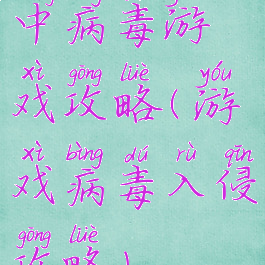 中病毒游
xì gōng lüè yóu
戏攻略(游
xì bìng dú rù qīn
戏病毒入侵
gōng lüè
攻略)